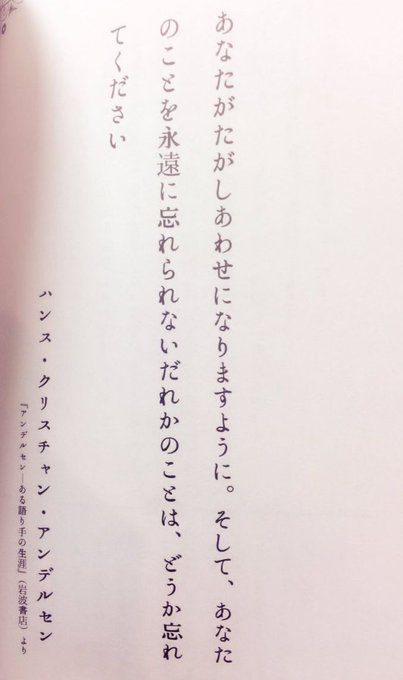 あなたがたがしあわせになりますように。そして、あなた
のことを永遠に忘れられないだれかのことは、どうか忘れ
てください
ハンス・クリスチャン・アンデルセン
『アンデルセン――ある語り手の生涯』（岩波書店）より